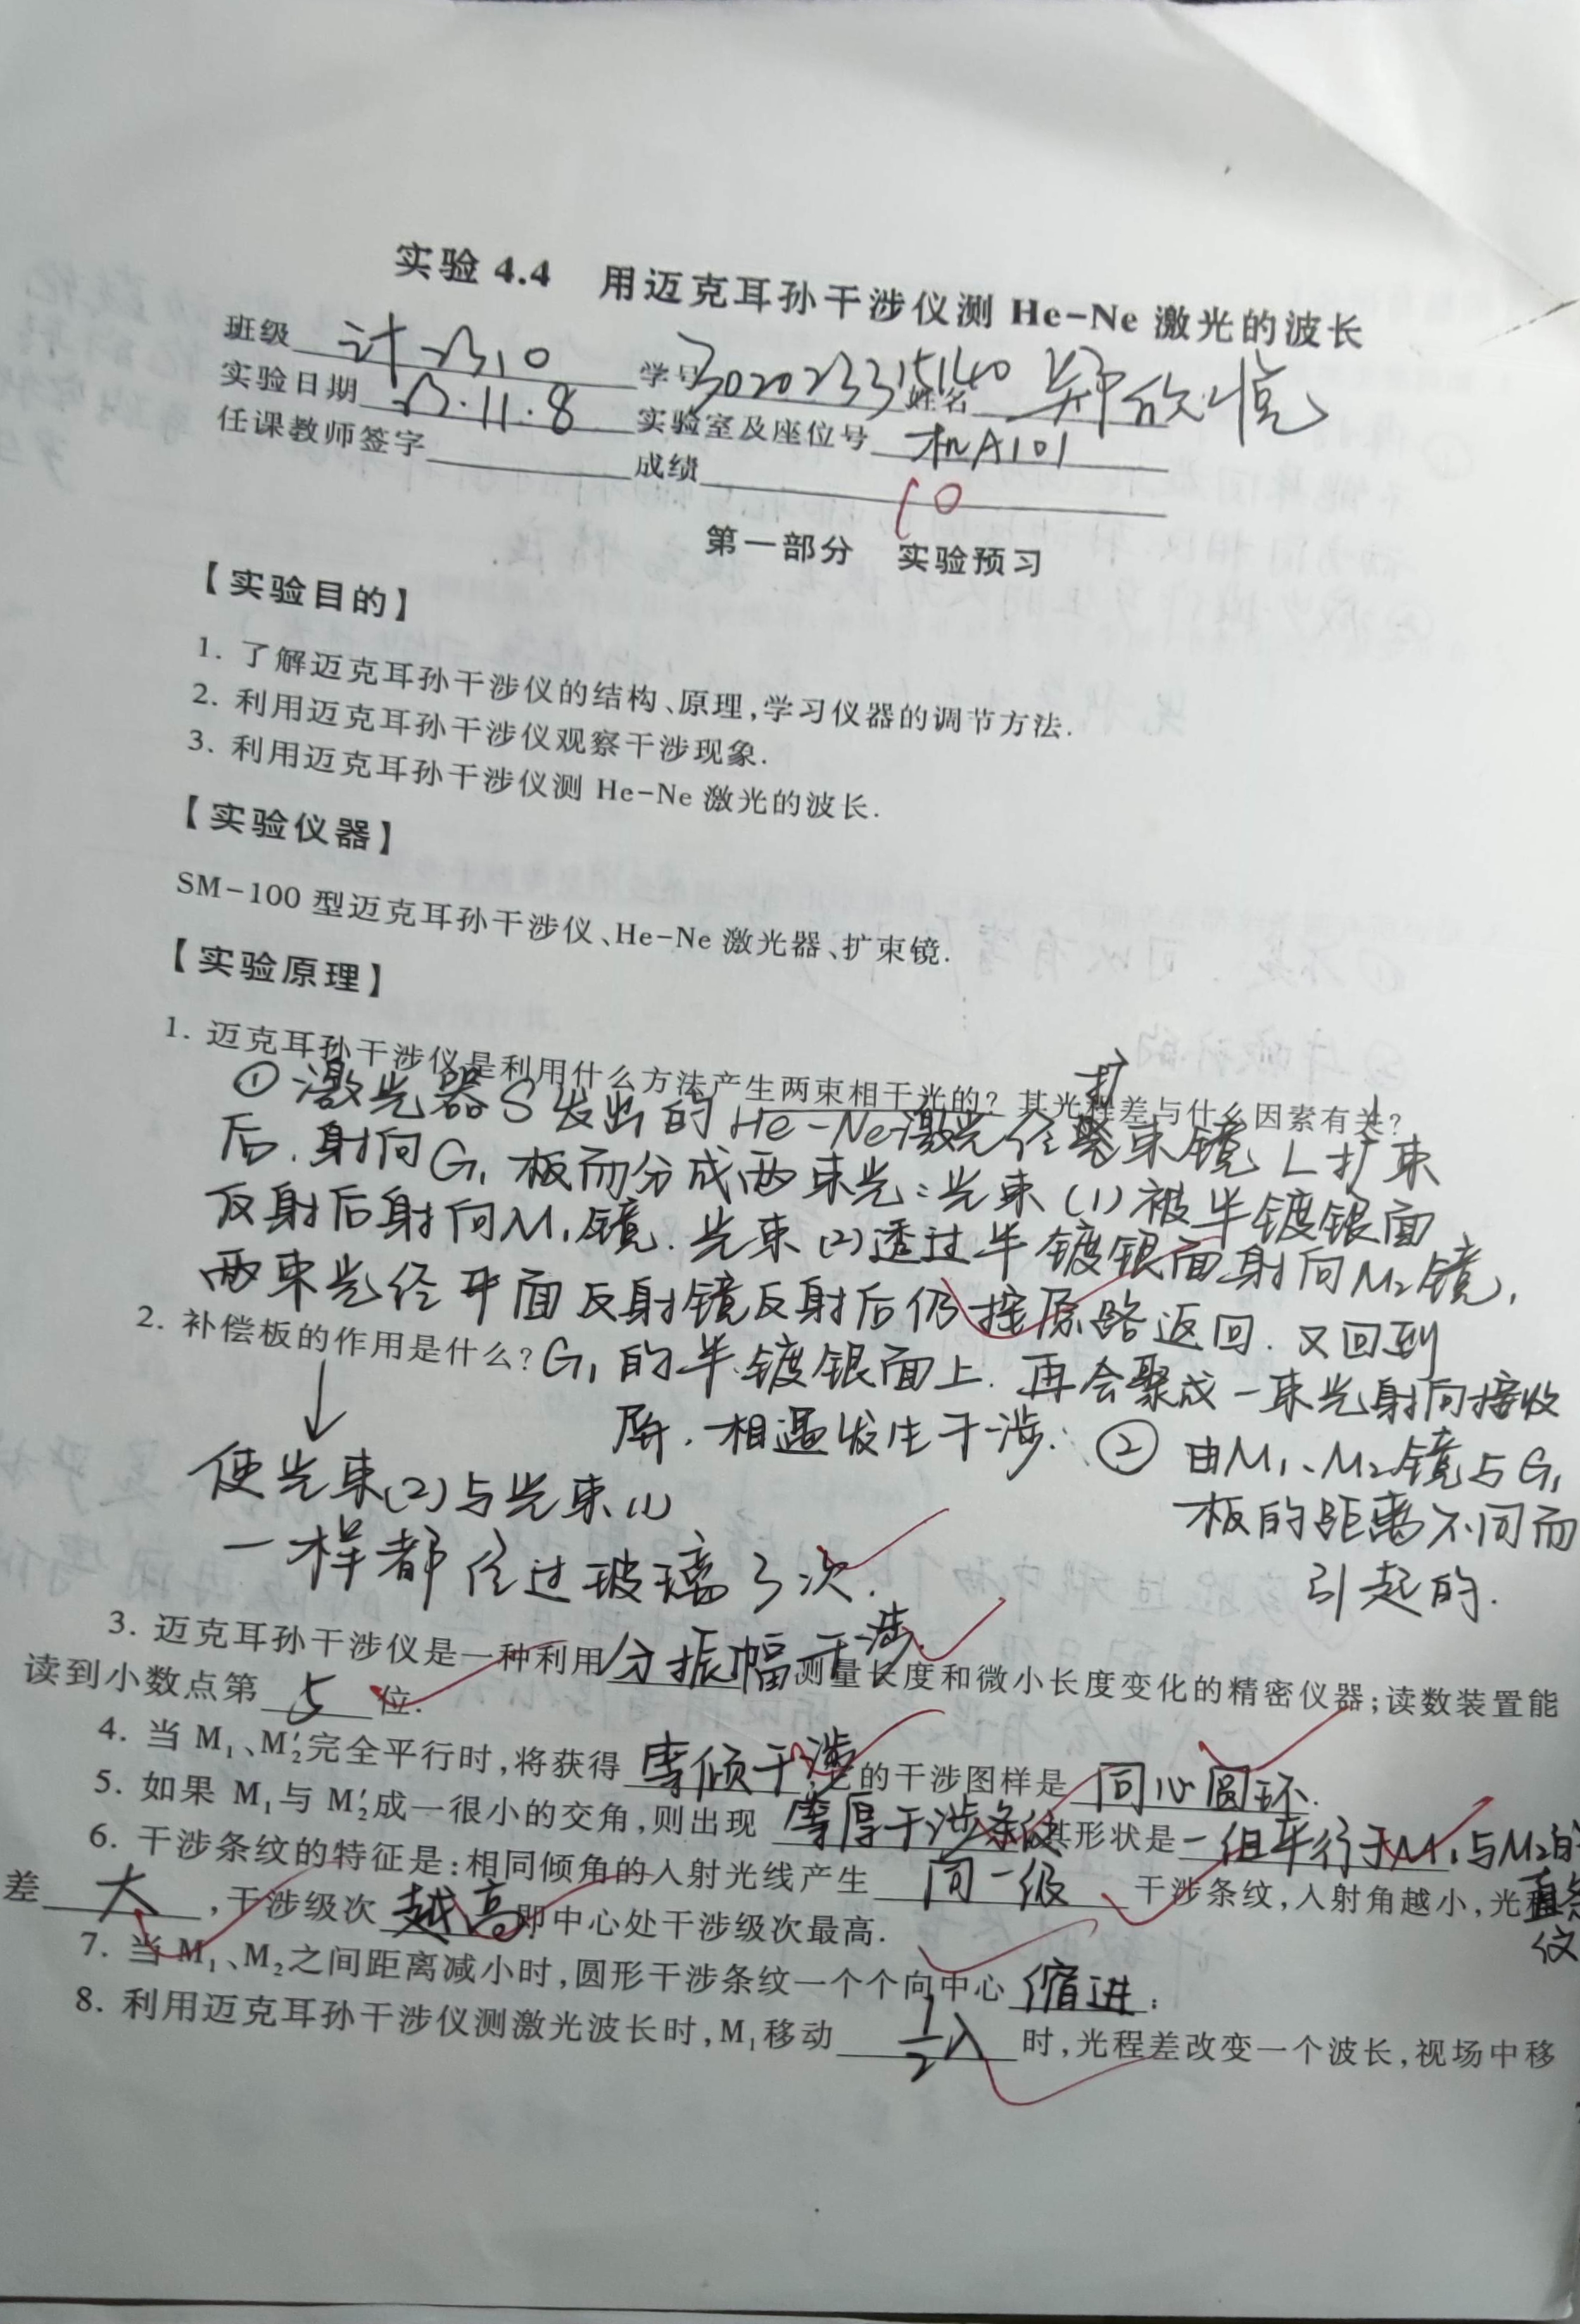 实验 4.4 用迈克耳孙干涉仪测 He-Ne 激光的波长
班级 计2310 学号 3020233315140 姓名 郑欣悦
实验日期 23.11.8 实验室及座位号 机A101
任课教师签字 成绩
10
第一部分 实验预习
【实验目的】
1. 了解迈克耳孙干涉仪的结构、原理,学习仪器的调节方法.
2. 利用迈克耳孙干涉仪观察干涉现象.
3. 利用迈克耳孙干涉仪测 He-Ne 激光的波长.
【实验仪器】
SM-100 型迈克耳孙干涉仪、He-Ne 激光器、扩束镜.
【实验原理】
1. 迈克耳孙干涉仪是利用什么方法产生两束相干光的? 其光程差与什么因素有关?
① 激光器S发出的He-Ne激光经扩束镜L扩束
后,射向G₁板而分成两束光:光束(1)被半镀银面
反射后射向M₁镜.光束(2)透过半镀银面射向M₂镜,
两束光经平面反射镜反射后仍按原路返回.又回到
2. 补偿板的作用是什么? G₁的半镀银面上.再会聚成一束光射向接收
屏.相遇发生干涉. ② 由M₁、M₂镜与G₁
板的距离不同而
引起的.
使光束(2)与光束(1)
一样都经过玻璃3次.
3. 迈克耳孙干涉仪是一种利用 分振幅干涉 测量长度和微小长度变化的精密仪器;读数装置能
读到小数点第 5 位.
4. 当 M₁、M₂′完全平行时,将获得 等倾干涉 的干涉图样是 同心圆环.
5. 如果 M₁与 M₂′成一很小的交角,则出现 等厚干涉条纹 其形状是 一组平行于M₁与M₂的
直条
纹
6. 干涉条纹的特征是:相同倾角的入射光线产生 同一级 干涉条纹,入射角越小,光程
差 大 ,干涉级次 越高 即中心处干涉级次最高.
7. 当 M₁、M₂之间距离减小时,圆形干涉条纹一个个向中心 缩进 ;
8. 利用迈克耳孙干涉仪测激光波长时,M₁移动 ½λ 时,光程差改变一个波长,视场中移